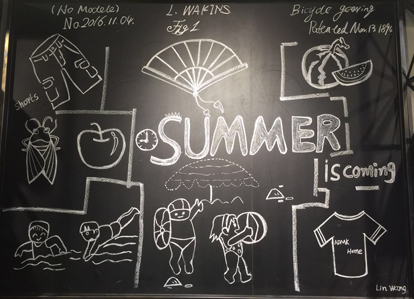 (No Modele)
No.2016.11.04.
L. WAKINS
Fig 1
Bicycle gearing
Patented Nov. 13 1896
Shorts
SUMMER
is coming
Home
Lin Wang